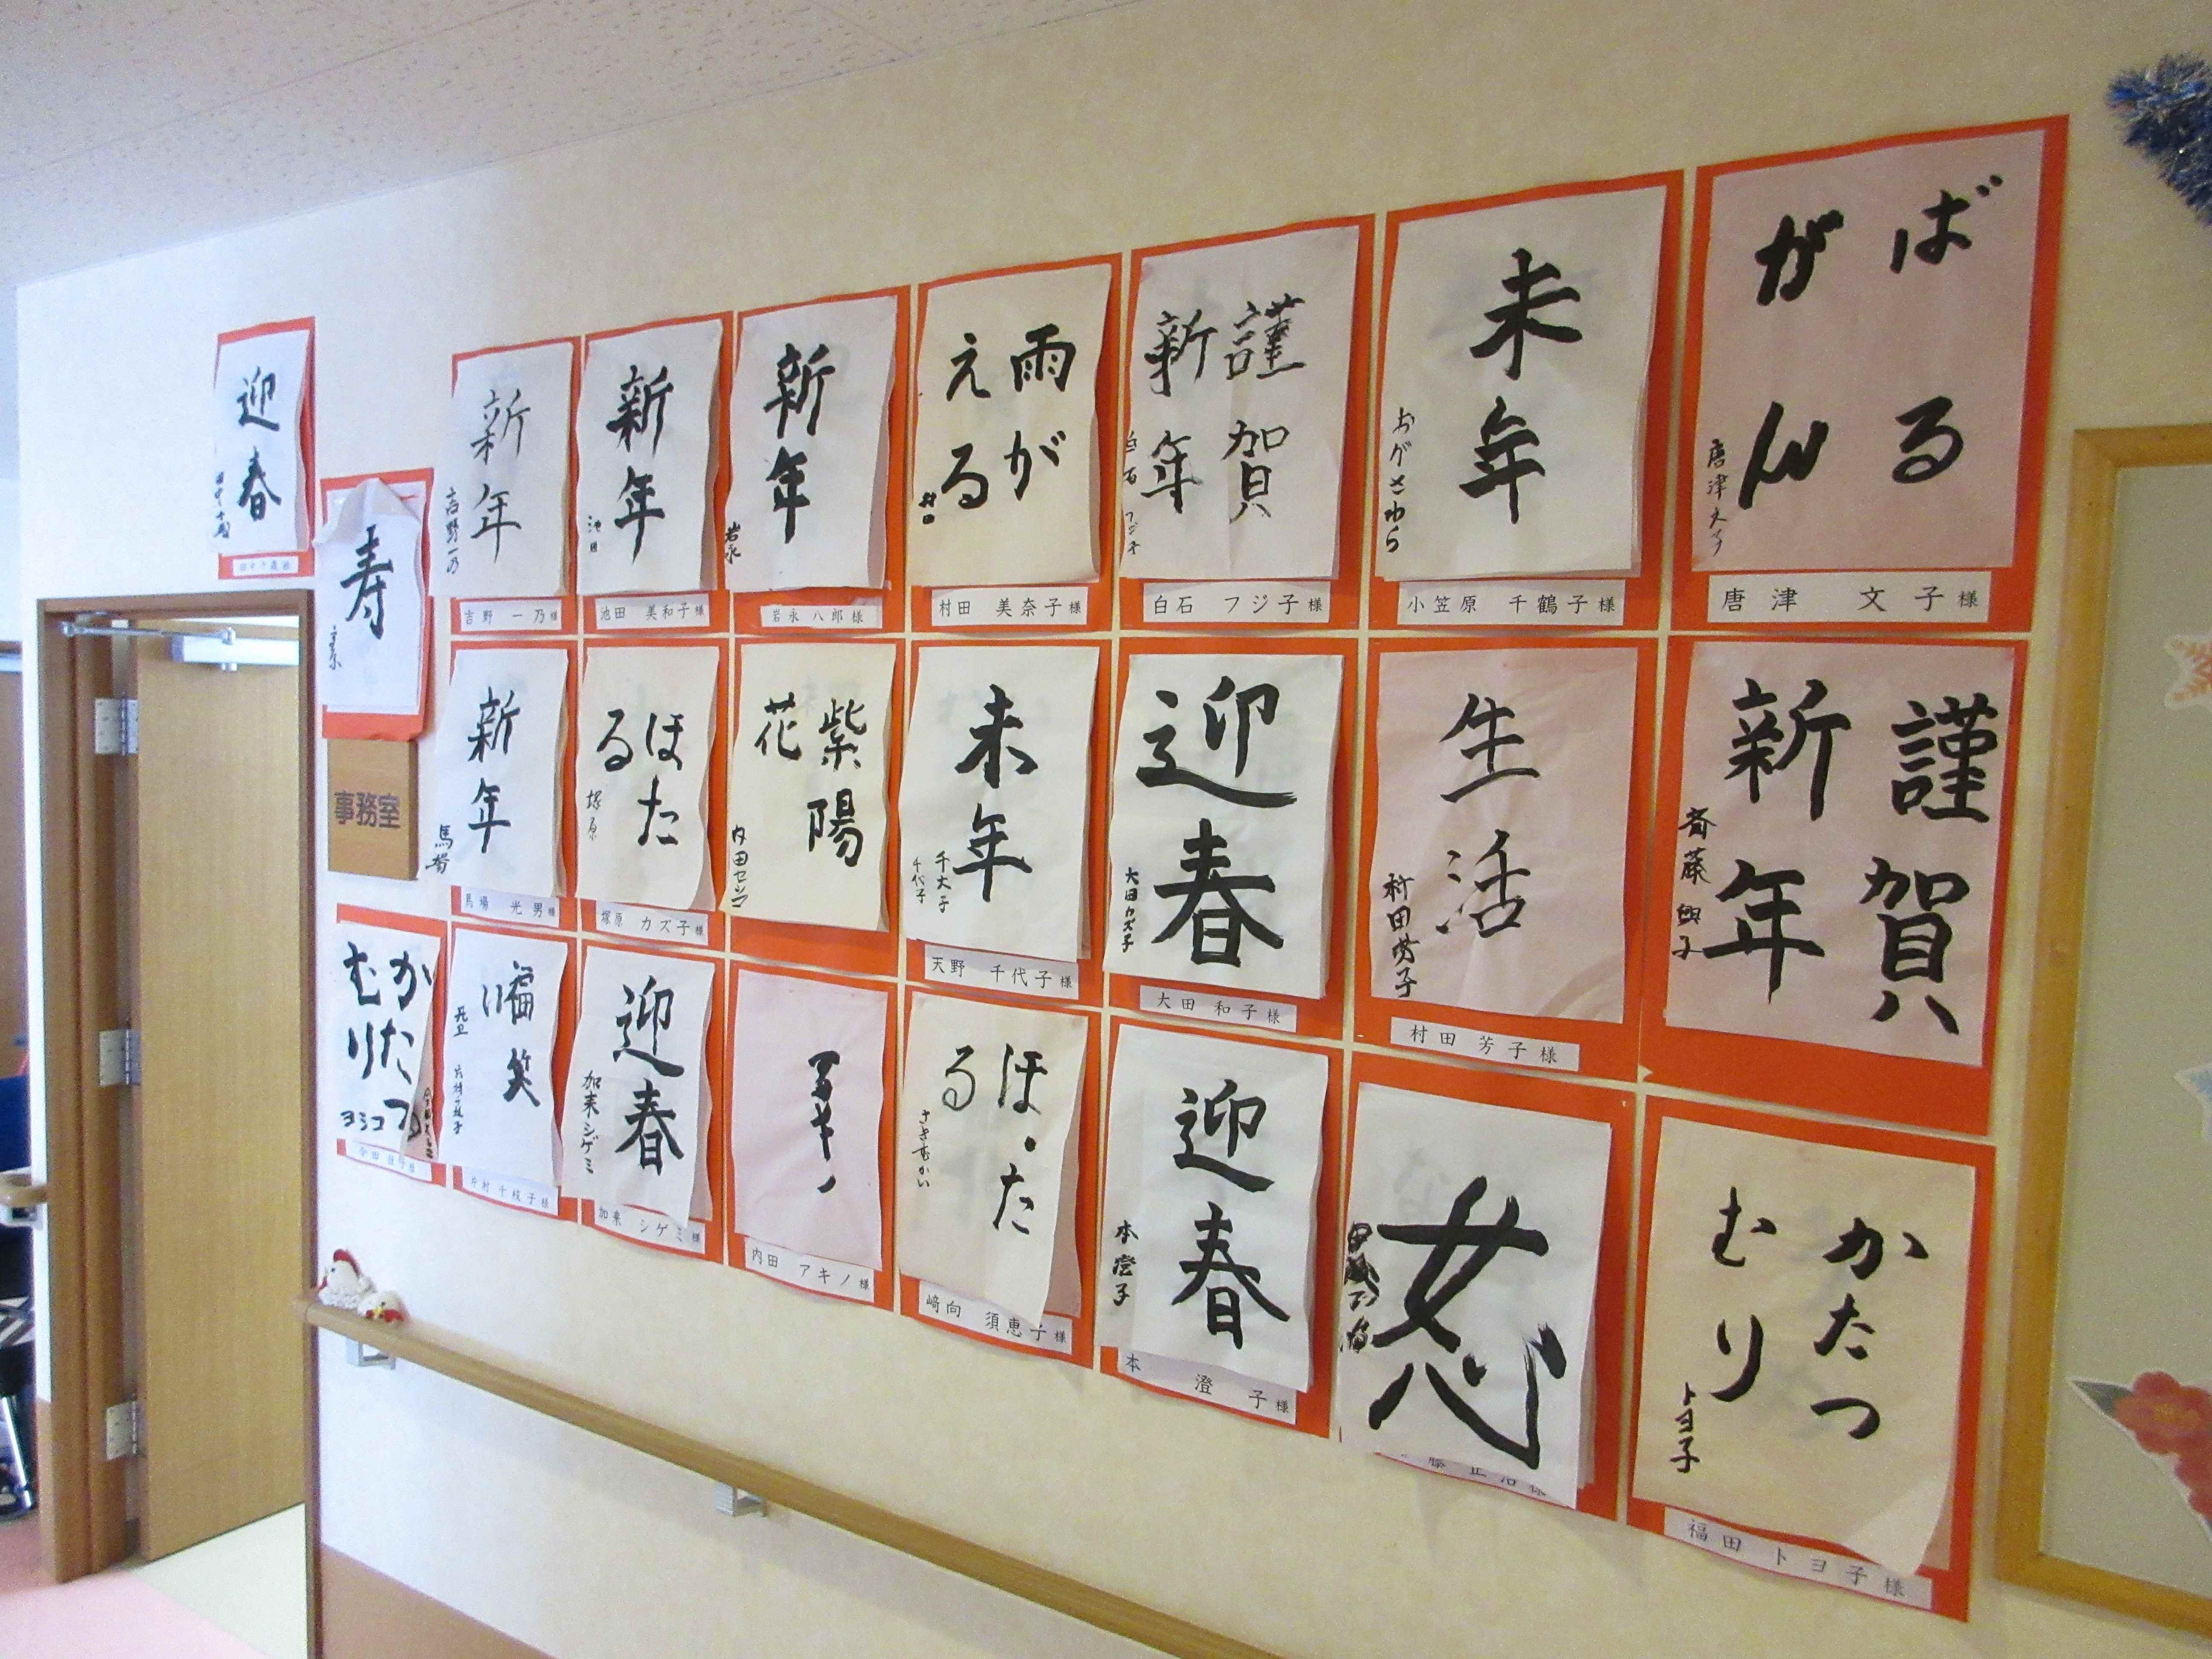 迎春
寿
事務室
新年
吉野一乃
吉野 一乃様
新年
池田
池田 美和子様
新年
岩永
岩永 八郎様
雨が
える
村田
村田 美奈子様
謹賀
新年
白石 フジ子
白石 フジ子様
未年
おがさわら
小笠原 千鶴子様
ばる
がん
唐津文子
唐津 文子様
新年
馬場
馬場 光男様
ほた
る
塚原
塚原 カズ子様
紫陽
花
未年
千代子
天野 千代子様
迎春
大田カズ子
大田 和子様
生活
村田芳子
村田 芳子様
謹賀
新年
斉藤
かた
むり
ヨシコ
福
笑
片村 千枝子様
迎春
加来シゲミ
加来 シゲミ様
内田 アキノ様
ほた
る
さきむかい
﨑向 須恵子様
迎春
本澄子
本 澄子様
かたつ
むり
トヨ子
福田 トヨ子様